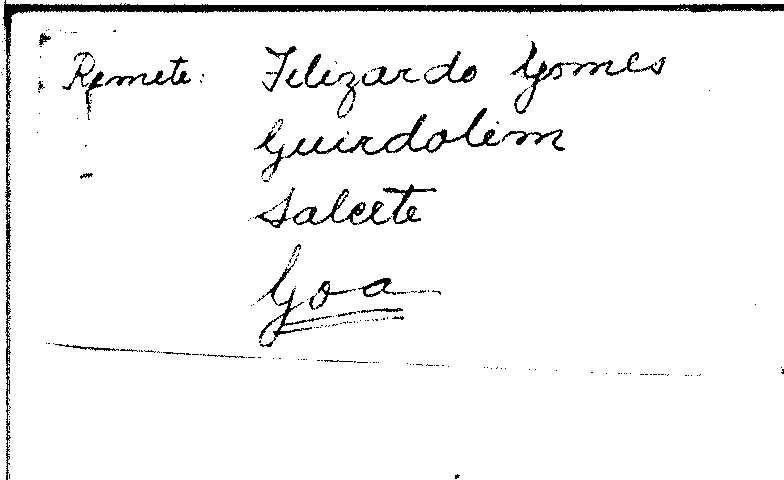 Remete: Felizardo Gomes
Guirdolim
Salcete
Goa